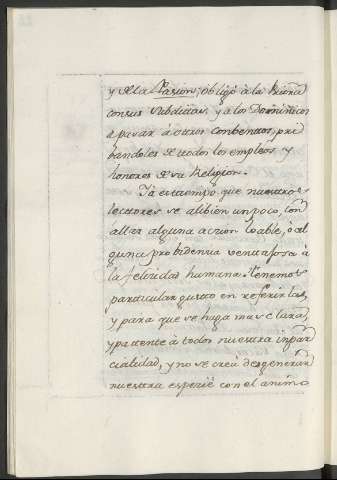 y de la Pasion, obligó à la Priora
con sus subditas, y a los Dominicos
a pasar à otros conbentos, pri
bandoles de todos los empleos y
honores de su Religion.
Ya es tiempo que nuestros
lectores se alibien un poco, con
alguna accion loable, o al
guna probidencia ventajosa à
la felicidad humana. tenemos
particular gusto en referirlas,
y para que se haga mas clara,
y patente à todos nuestra inpar
cialidad, y no se crea degenerar
nuestra especie con el animo